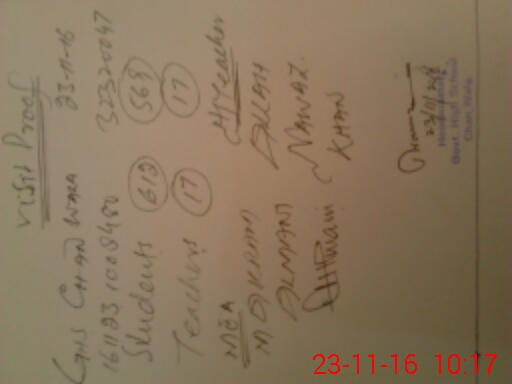 Visit Proof
GHS CHAN WARA 23-11-16
161123 1008480 32320047
Students 613 568
Teachers 17 17
MEA H/Teacher
MOKRAM ALLAH
ARMANI NAWAZ
KHAN
23/11/2016
Headmaster
Govt. High School
Chan Wara
23-11-16 10:17